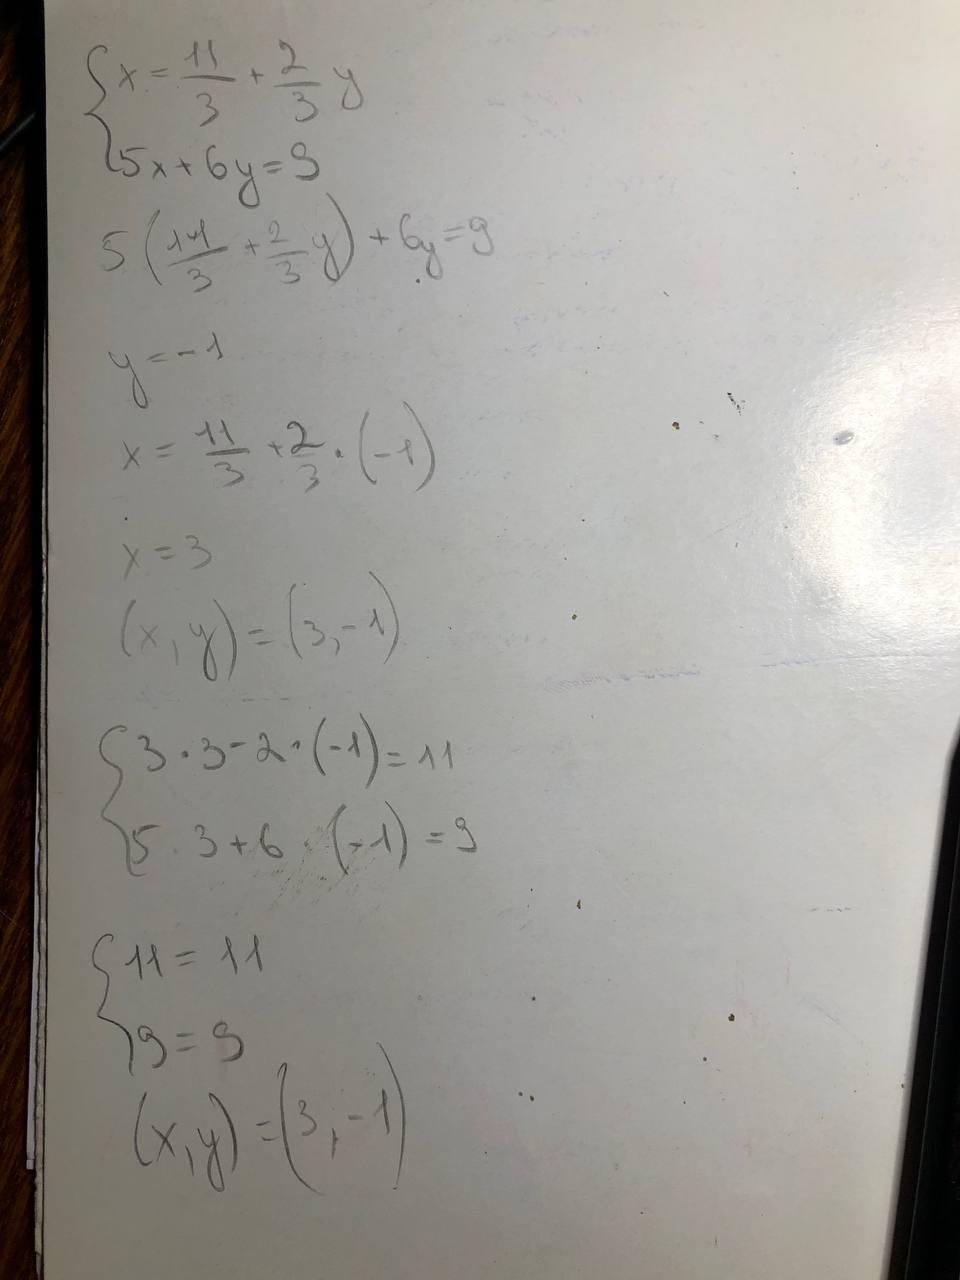 { x = 11/3 + 2/3 y
5x + 6y = 9
5 (11/3 + 2/3 y) + 6y = 9
y = -1
x = 11/3 + 2/3 · (-1)
x = 3
(x, y) = (3, -1)
{ 3 · 3 - 2 · (-1) = 11
5 · 3 + 6 · (-1) = 9
{ 11 = 11
9 = 9
(x, y) = (3, -1)